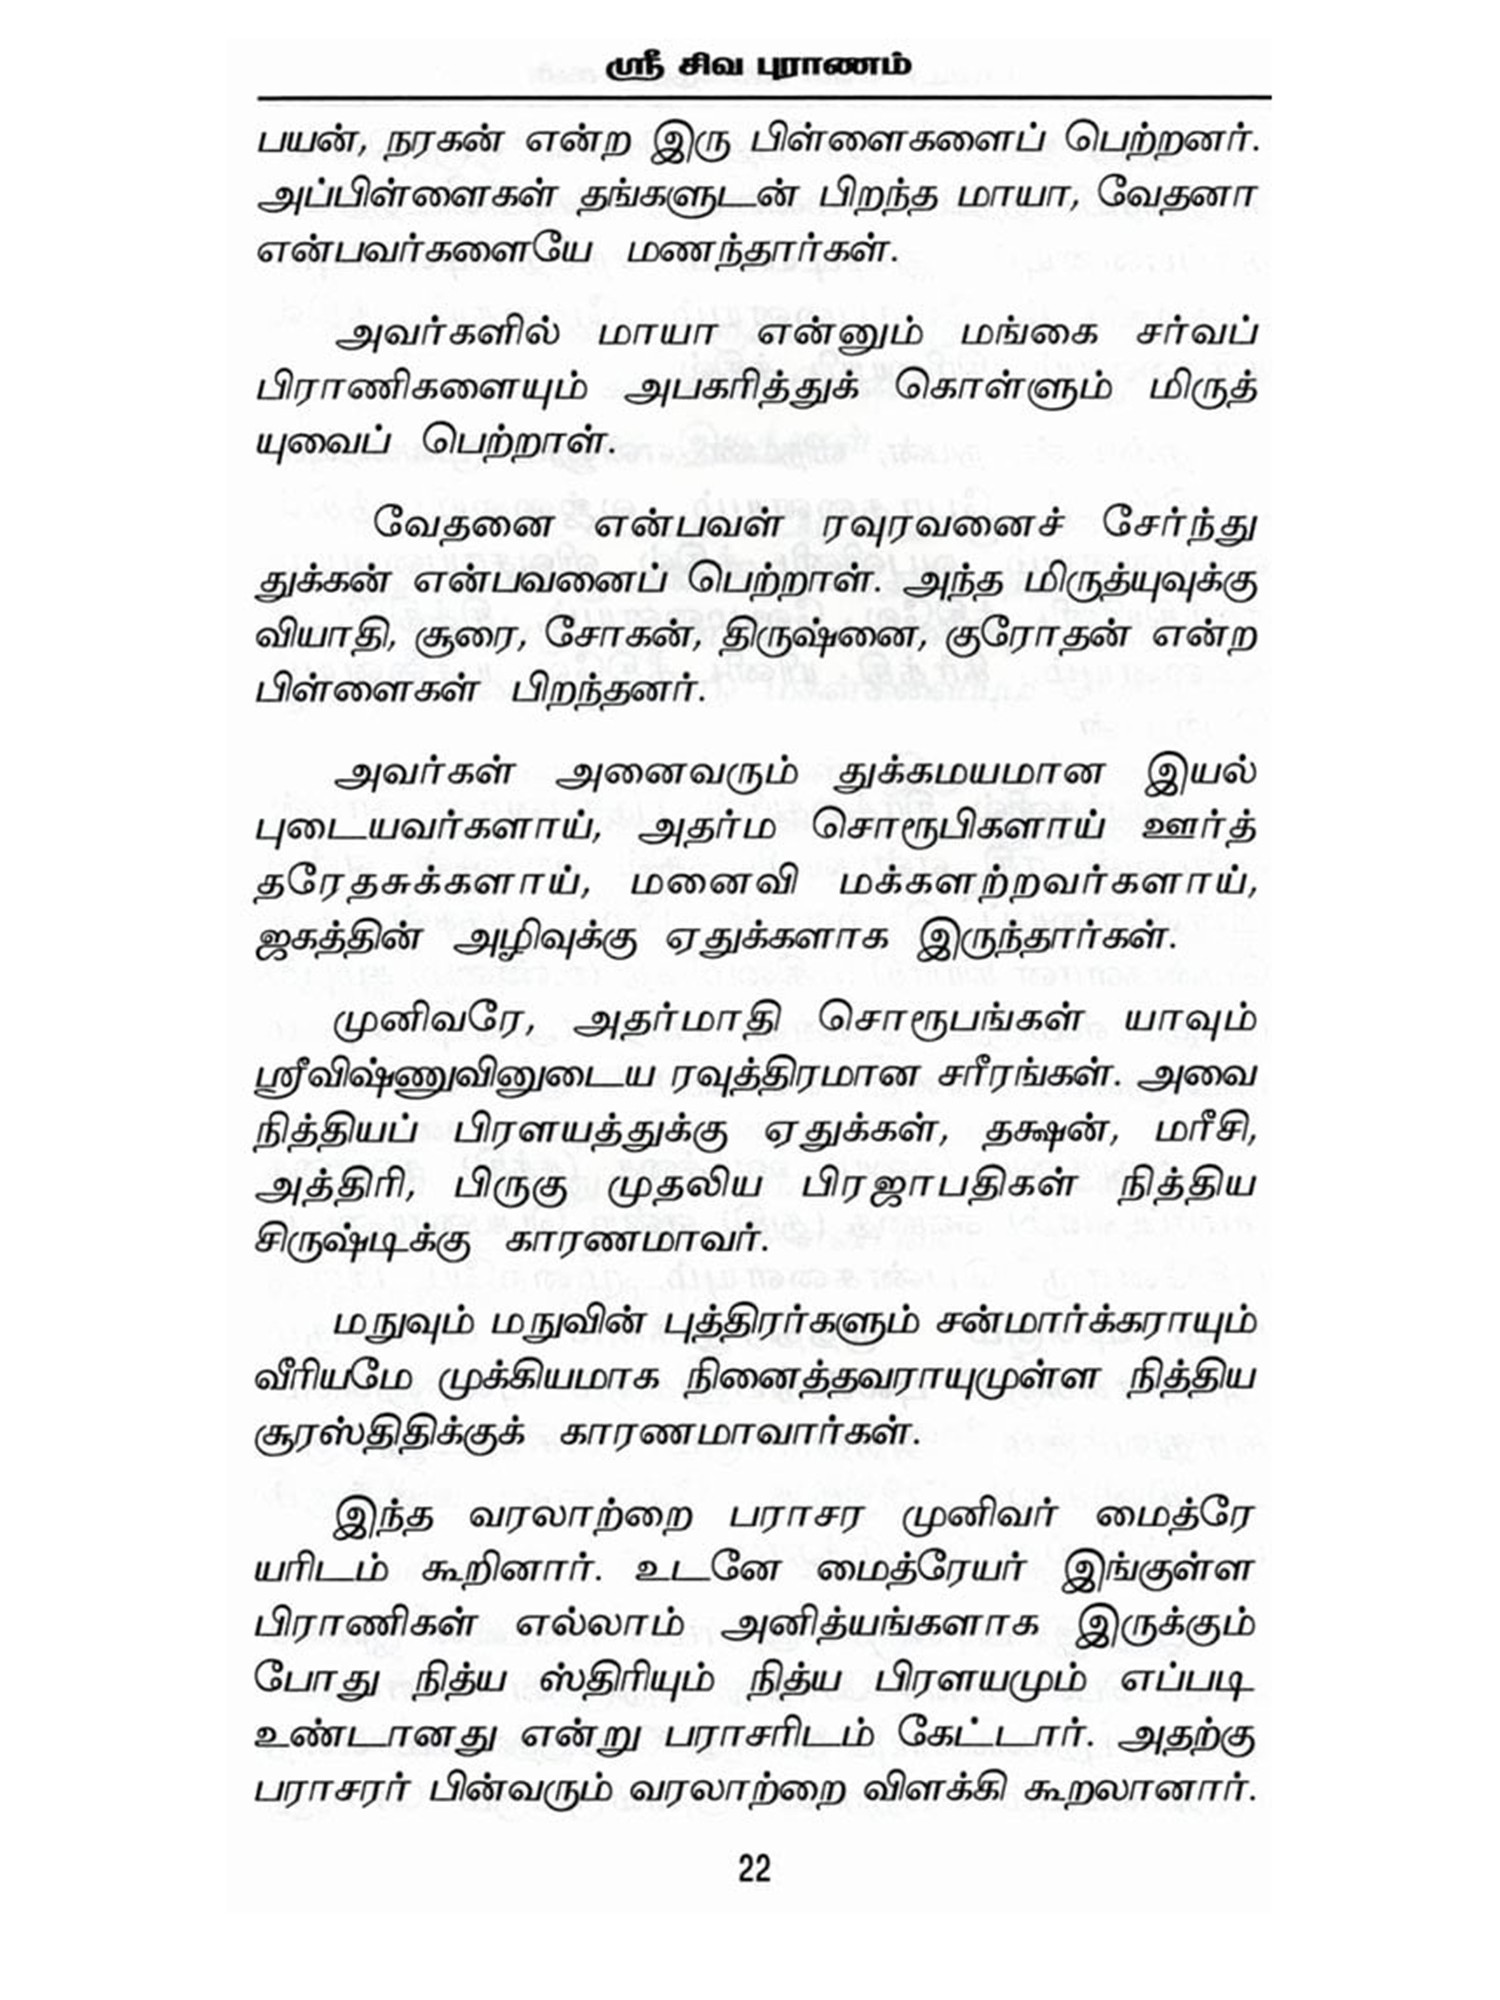 ஸ்ரீ சிவ புராணம்
பயன், நரகன் என்ற இரு பிள்ளைகளைப் பெற்றனர்.
அப்பிள்ளைகள் தங்களுடன் பிறந்த மாயா, வேதனா
என்பவர்களையே மணந்தார்கள்.
அவர்களில் மாயா என்னும் மங்கை சர்வப்
பிராணிகளையும் அபகரித்துக் கொள்ளும் மிருத்
யுவைப் பெற்றாள்.
வேதனை என்பவள் ரவுரவனைச் சேர்ந்து
துக்கன் என்பவனைப் பெற்றாள். அந்த மிருத்யுவுக்கு
வியாதி, சூரை, சோகன், திருஷ்னை, குரோதன் என்ற
பிள்ளைகள் பிறந்தனர்.
அவர்கள் அனைவரும் துக்கமயமான இயல்
புடையவர்களாய், அதர்ம சொரூபிகளாய் ஊர்த்
தரேதசுக்களாய், மனைவி மக்களற்றவர்களாய்,
ஜகத்தின் அழிவுக்கு ஏதுக்களாக இருந்தார்கள்.
முனிவரே, அதர்மாதி சொரூபங்கள் யாவும்
ஸ்ரீவிஷ்ணுவினுடைய ரவுத்திரமான சரீரங்கள். அவை
நித்தியப் பிரளயத்துக்கு ஏதுக்கள், தக்ஷன், மரீசி,
அத்திரி, பிருகு முதலிய பிரஜாபதிகள் நித்திய
சிருஷ்டிக்கு காரணமாவர்.
மநுவும் மநுவின் புத்திரர்களும் சன்மார்க்கராயும்
வீரியமே முக்கியமாக நினைத்தவராயுமுள்ள நித்திய
சூரஸ்திதிக்குக் காரணமாவார்கள்.
இந்த வரலாற்றை பராசர முனிவர் மைத்ரே
யரிடம் கூறினார். உடனே மைத்ரேயர் இங்குள்ள
பிராணிகள் எல்லாம் அனித்யங்களாக இருக்கும்
போது நித்ய ஸ்திரியும் நித்ய பிரளயமும் எப்படி
உண்டானது என்று பராசரிடம் கேட்டார். அதற்கு
பராசரர் பின்வரும் வரலாற்றை விளக்கி கூறலானார்.
22